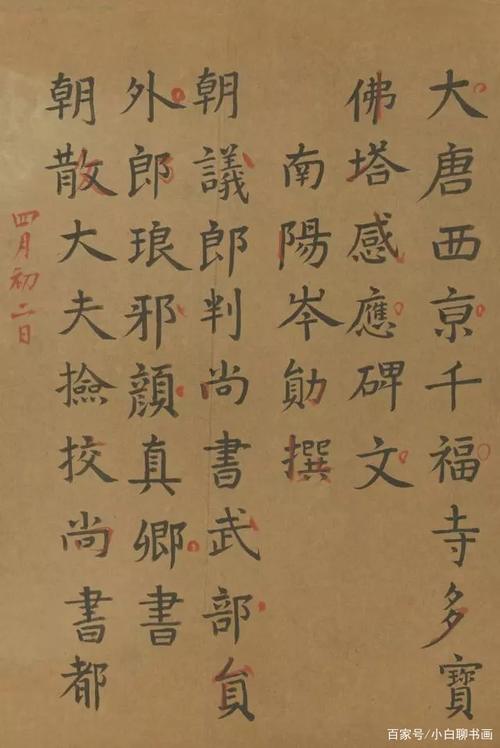 大唐西京千福寺多寶
佛塔感應碑文
南陽岑勛撰
朝議郎判尚書武部員
外郎琅邪顏真卿書
朝散大夫撿挍尚書都
四月初二日
百家号/小白聊书画